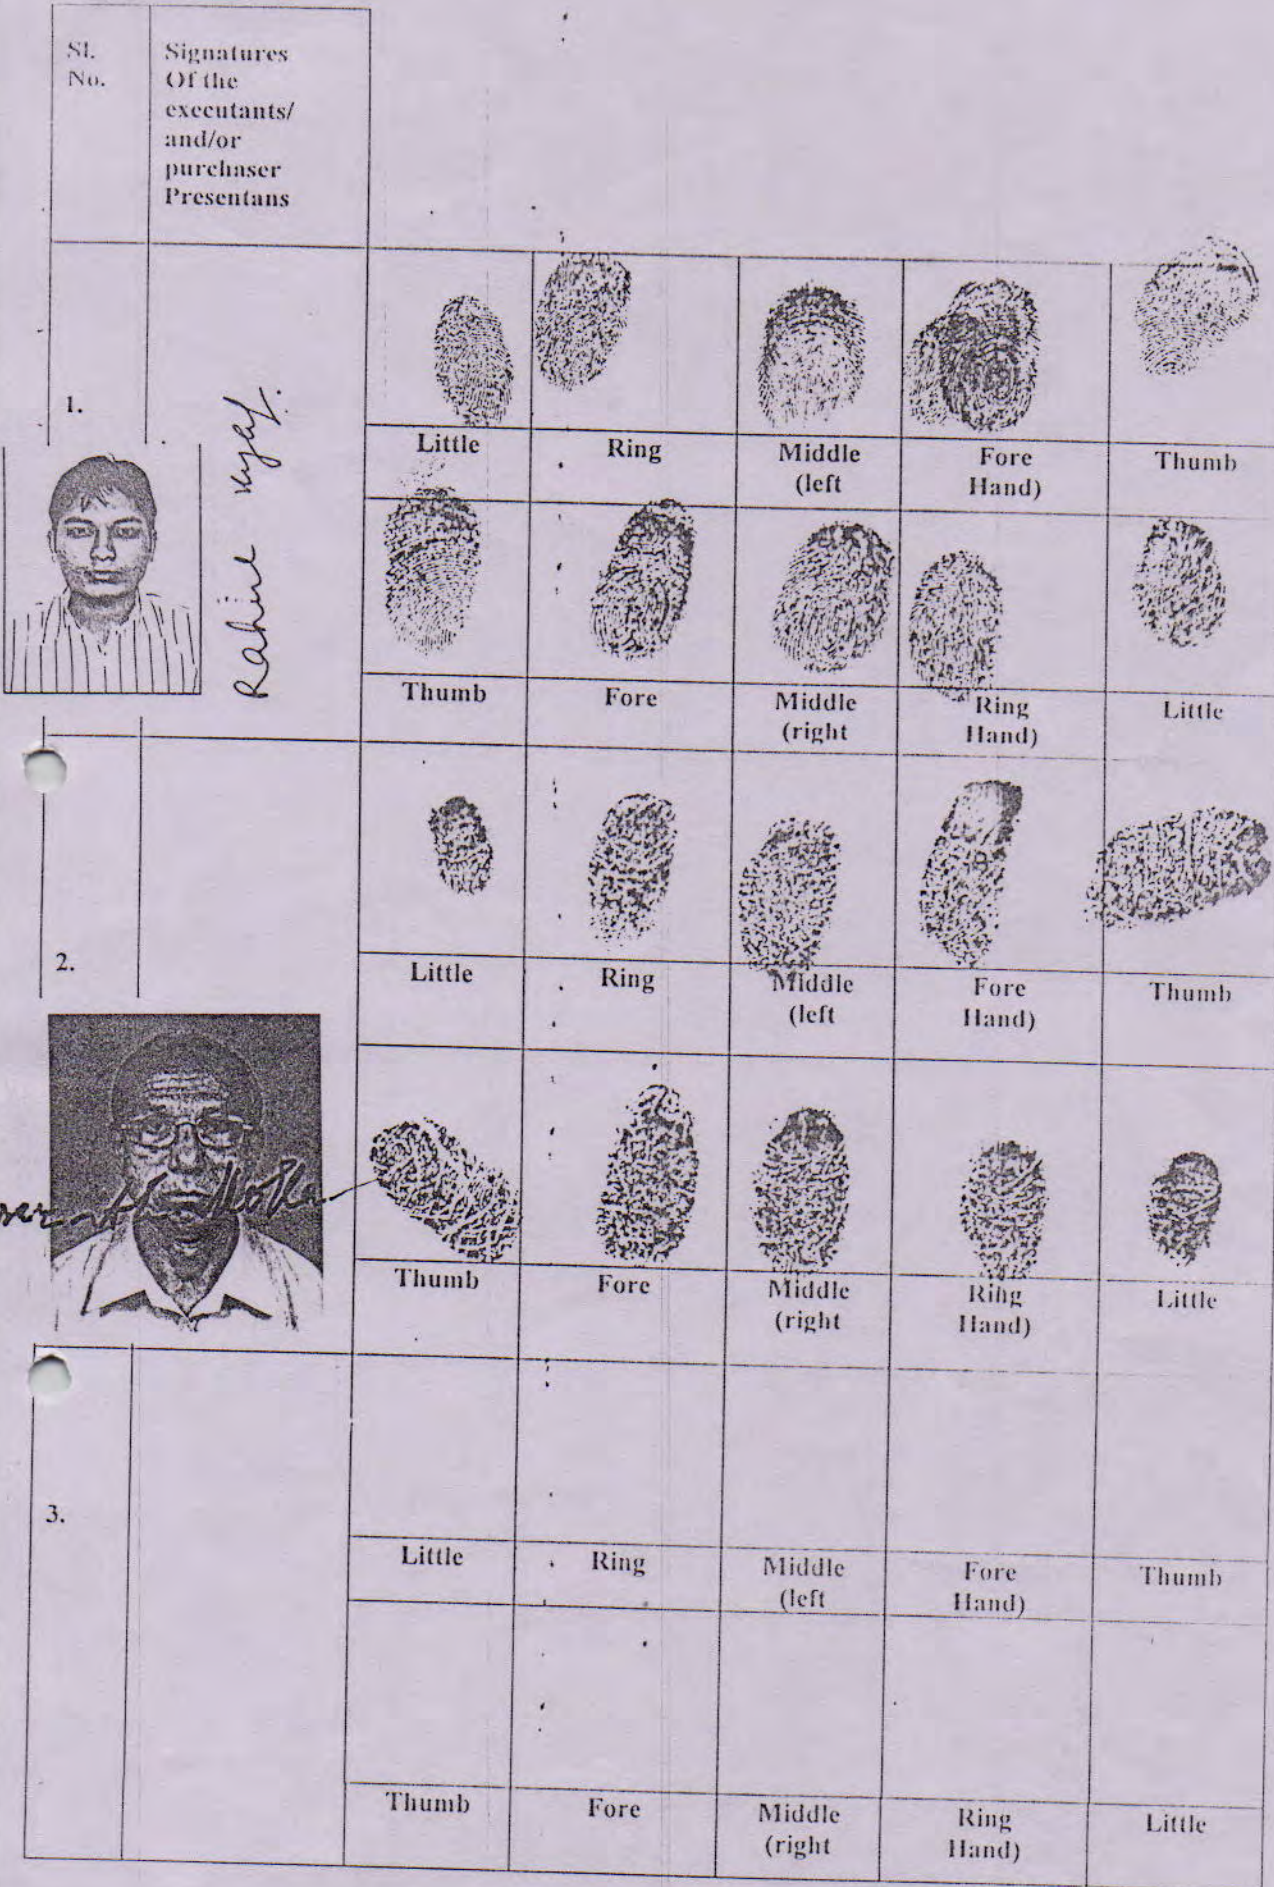 Sl.
No.
Signatures
Of the
executants/
and/or
purchaser
Presentans
1.
Little
Ring
Middle
(left
Fore
Hand)
Thumb
Thumb
Fore
Middle
(right
Ring
Hand)
Little
2.
Little
Ring
Middle
(left
Fore
Hand)
Thumb
Thumb
Fore
Middle
(right
Ring
Hand)
Little
3.
Little
Ring
Middle
(left
Fore
Hand)
Thumb
Thumb
Fore
Middle
(right
Ring
Hand)
Little